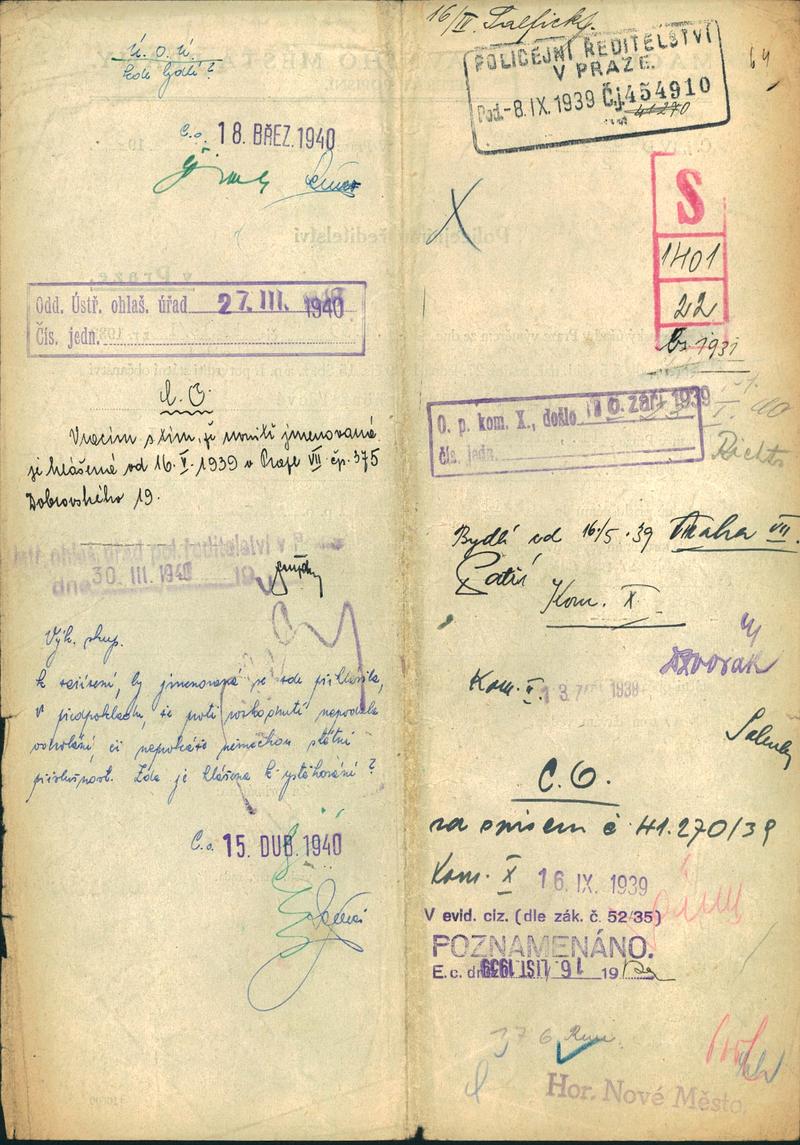 Ú. O. Ú.
kde bydlí?
C.o. 18. BŘEZ. 1940
Odd. Ústř. ohlaš. úřad 27. III. 1940
Čís. jedn.
C. O.
Vracím s tím, že nom. jmenovaná
je hlášena od 16. V. 1939 v Praze VII čp. 375
Dobrovského 19.
ústř. ohlaš. úřad pol. ředitelství v
dne 30. III. 1940 19
Výk. skup.
K zařízení, by jmenovaná se zde přihlásila,
v předpokladu, že proti rozhodnutí nepodala
odvolání, či nepokáže německou státní
příslušnost. Zda je hlášena k vystěhování?
C.o. 15. DUB. 1940
16/IV.
64
POLICEJNÍ ŘEDITELSTVÍ
V PRAZE.
Pod. -8. IX. 1939 Čj. 454910
41270
X
S
1401
22
1931
O. p. kom. X., došlo 10. září 1939
čís. jedn.
Bydlí od 16./5. 39 Praha VII.
Patří
Kom. X
Dvořák
Kom. II. 13. 1939
C. O.
za spisem č 41.270/39
Kom. X 16. IX. 1939
V evid. ciz. (dle zák. č. 52/35)
POZNAMENÁNO.
E. c. dne 16. LIST. 1939 19
376
Hor. Nové Město.